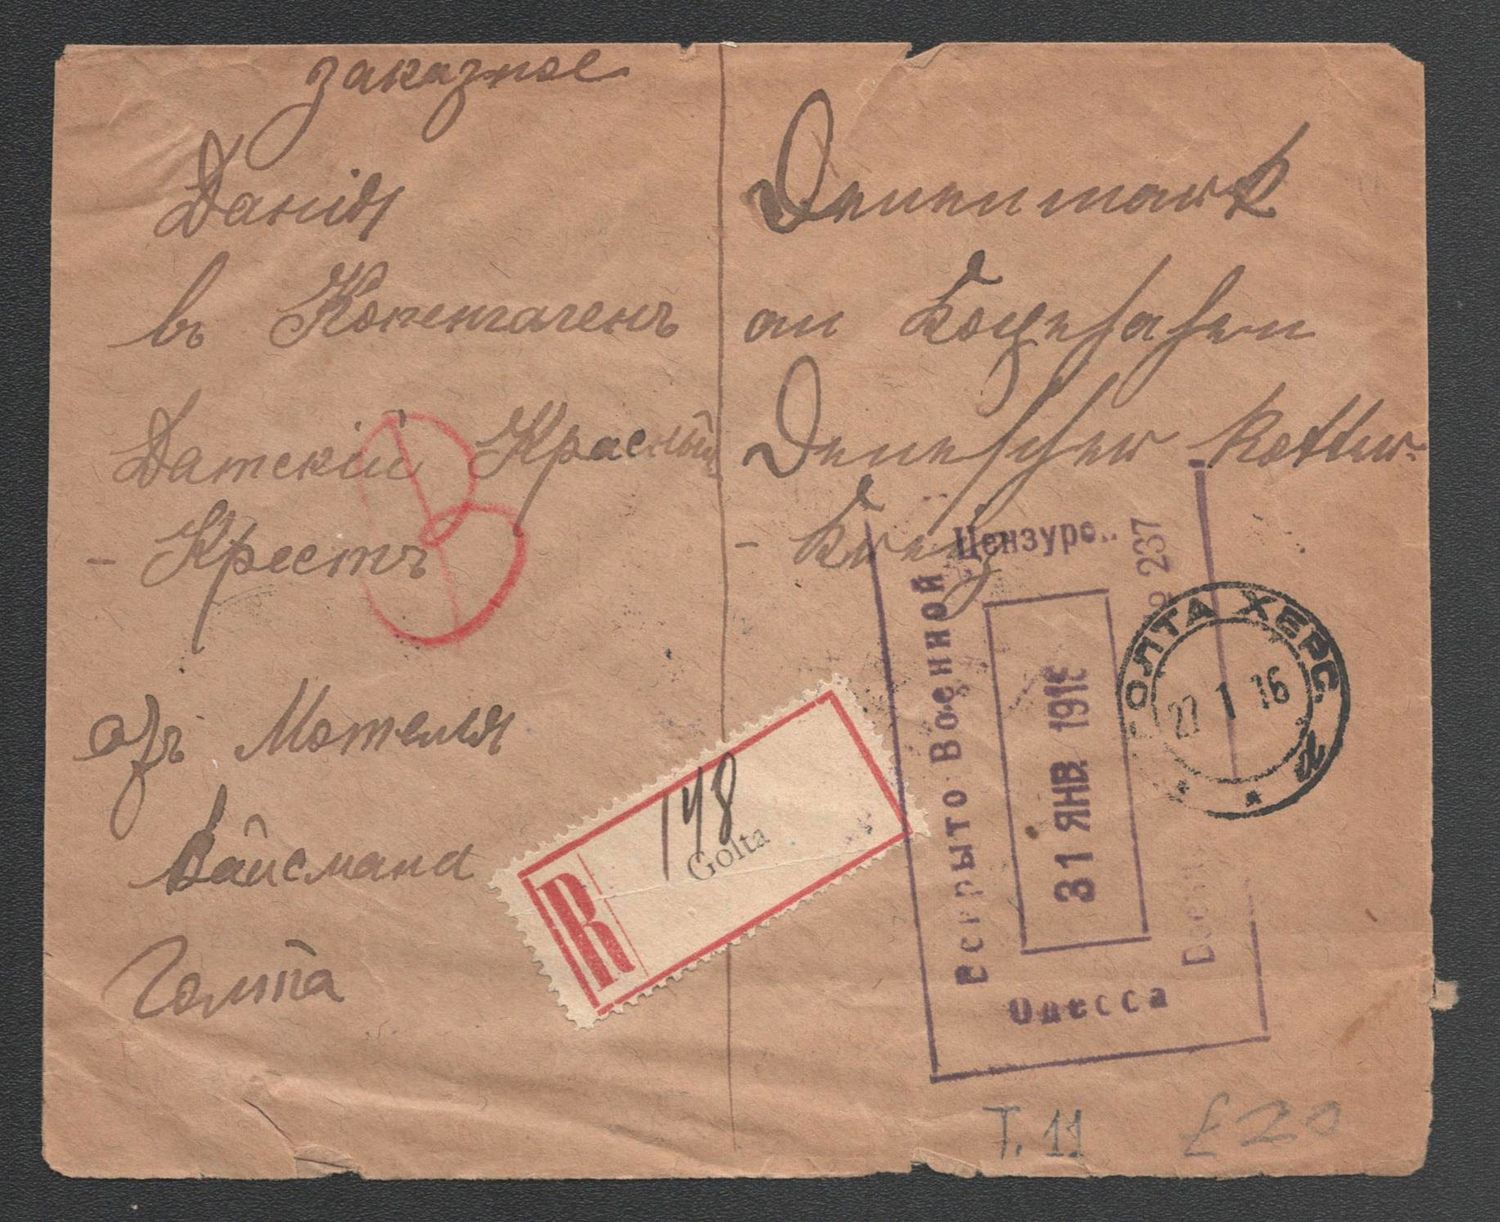 заказное
Данія
въ Копенгагенъ
Датскій Красный
- Крестъ
отъ Мотеля
Вайсмана
Голта
Denenmark
an Kopehahen
Denescher Rotter-
- Kreiz
R
148
Golta
Вскрыто Военной
Цензуро
31 ЯНВ. 1916
№ 237
Одесса
Военн
ГОЛТА ХЕРС.
27 1 16
T. 11
£20